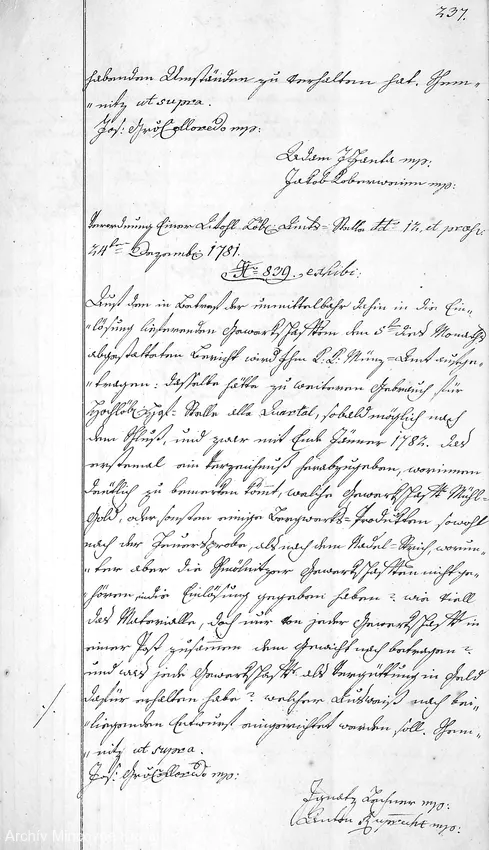 237.
habenden Umständen zu verhalten hat. Schem-
nitz ut supra.
Jos: Gr: Colloredo mp:
Adam J: Hanta mp:
Jakob Loberweinn mp:
Verordnung Einer Lobl. Amts-Stelle dto 12. et præs:
24t Dezembr 1781.
No 839. exhibi:
Auf den in Betreff der unmittelbahr dahin in die Ein-
lösung liefernden Gewerkschaften den 5t dieses Monaths
abgestatteten Bericht wird Ihm K: K: Münz-Amt aufge-
tragen: dasselbe hätte zu weiteren Gebrauch für
Stelle alle Quartal, sobald möglich nach
dem Schluß, und zwar mit Ende Jänner 1782. das
erstemal ein Verzeichniß herabzugeben, worinnen
deutlich zu bemerken kömt, welche Gewerkschaft Mühl-
Gold, oder sonsten einige Bergwerks-Produkten sowohl
nach der Feuersprobe, als nach dem Nadel-Strich, worun-
ter aber die Schmölnitzer Gewerkschaften nicht ge-
hören, in die Einlösung gegeben haben? wie viell
das Materialle, doch nur von jeder Gewerkschaft in
einer Post zusammen dem Gewicht nach betragen?
und was jede Gewerkschaft als Vergüttung in Geld
dafür erhalten habe? welcher Ausweiß nach bei-
liegenden Entwurf eingerichtet werden soll. Schem-
nitz ut supra.
Jos: Gr: Colloredo mp:
Ignatz Lechner mp:
Anton Ruprecht mp:
Archiv